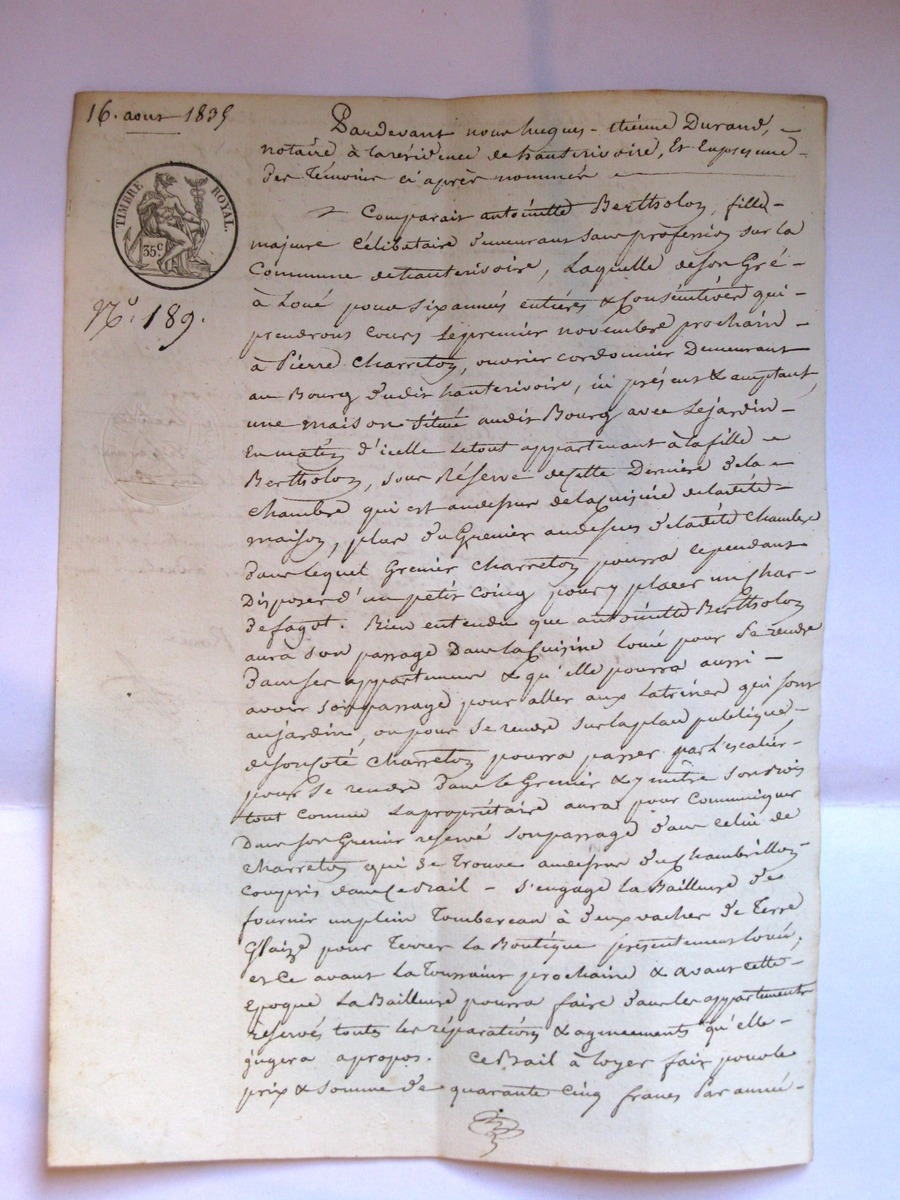 16. aout 1835
TIMBRE ROYAL.
35 c
N.° 189.
Pardevant nous hugues-étienne Durand,
notaire à la résidence de hauterivoire, Et En présence
des Témoins ci après nommés
Comparait antoinette Bertholon, fille
majeure célibataire demeurant sans profession sur la
Commune de hauterivoire, Laquelle de son Gré
à Loué pour six années entières & Consécutives qui
prendront cours le premier novembre prochain
à Pierre Charreton, ouvrier cordonnier Demeurant
au Bourg dudit hauterivoire, ici présent & acceptant,
une maison située audit Bourg avec Le jardin
En matin d'icelle le tout appartenant à la fille
Bertholon, sous Réserve de cette Dernière de la
chambre qui est audessus de la Cuisine de ladite
maison, plus du Grenier audessus de ladite Chambre
dans lequel Grenier Charreton pourra cependant
Disposer d'un petit Coing pour y placer un char
de fagot. Bien entendu que antoinette Bertholon
aura son passage Dans la Cuisine louée pour se rendre
dans ses appartements & qu'elle pourra aussi
avoir son passage pour aller aux Latrines qui sont
au jardin, ou pour se rendre sur la place publique,
de son coté Charreton pourra passer par l'escalier
pour se rendre dans le Grenier & y mettre son bois
tout comme La propriétaire aura pour Communiquer
Dans son Grenier reservé son passage dans celui de
Charreton qui se Trouve audessus du Chambrillon
compris dans ce Bail - s'engage La Bailleuse de
fournir un plein Tombereau à deux vaches de Terre
Glaize pour Terrer La Boutique présentement louée,
et ce avant La Toussaint prochaine & avant cette
Epoque La Bailleuse pourra faire dans les appartements
réservés toutes les réparations & agencements qu'elle
jugera apropos. Ce Bail à loyer fait pour le
prix & Somme de quarante Cinq francs Par année